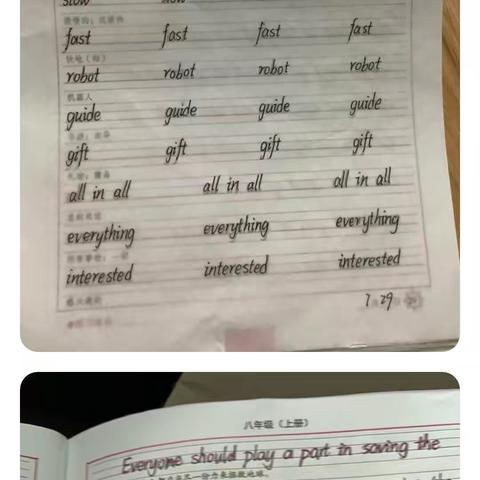 slow slow
fast fast fast fast
快地（的）
robot robot robot robot
机器人
guide guide guide guide
gift gift gift gift
all in all all in all all in all
everything everything everything
interested interested interested
7月29日
八年级（上册）
Everyone should play a part in saving the